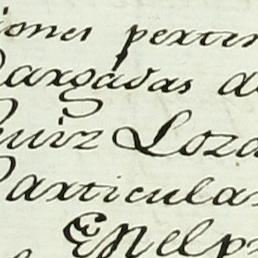 iones perten
Cargadas de
Ruiz Loza
Particular
En el pr